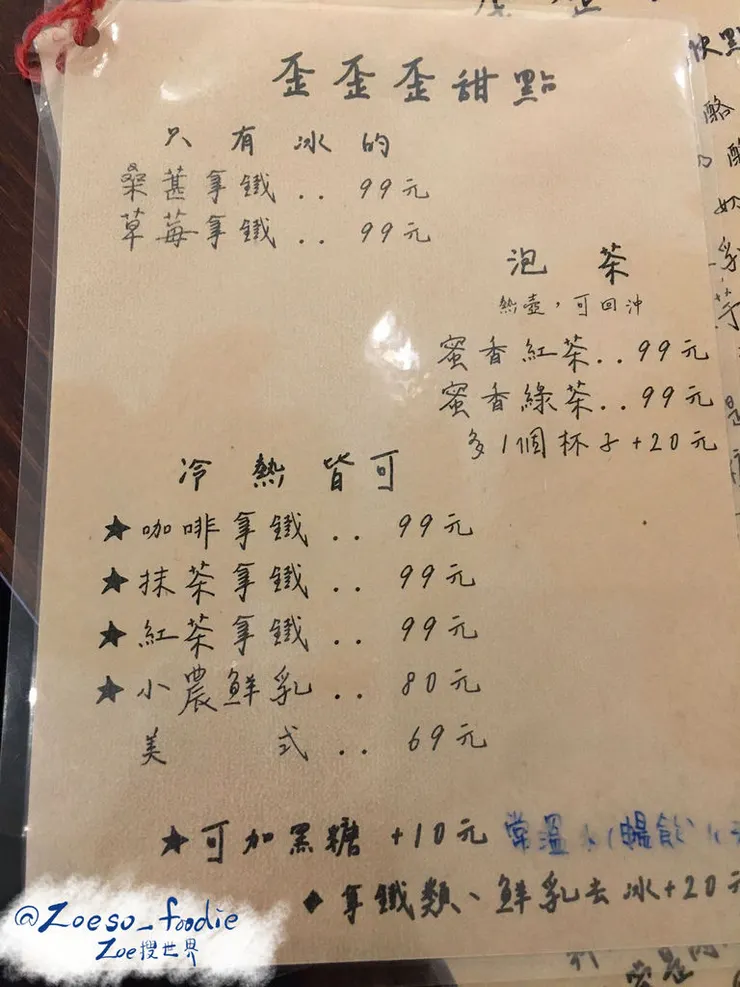 歪歪歪甜點
只有冰的
桑葚拿鐵.. 99元
草莓拿鐵.. 99元
泡茶
熱壺，可回沖
蜜香紅茶..99元
蜜香綠茶..99元
多1個杯子+20元
冷熱皆可
★咖啡拿鐵.. 99元
★抹茶拿鐵.. 99元
★紅茶拿鐵.. 99元
★小農鮮乳.. 80元
美式.. 69元
★可加黑糖 +10元 常溫
◆拿鐵類、鮮乳去冰+20元
@Zoeso_foodie
Zoe搜世界
快點
酪